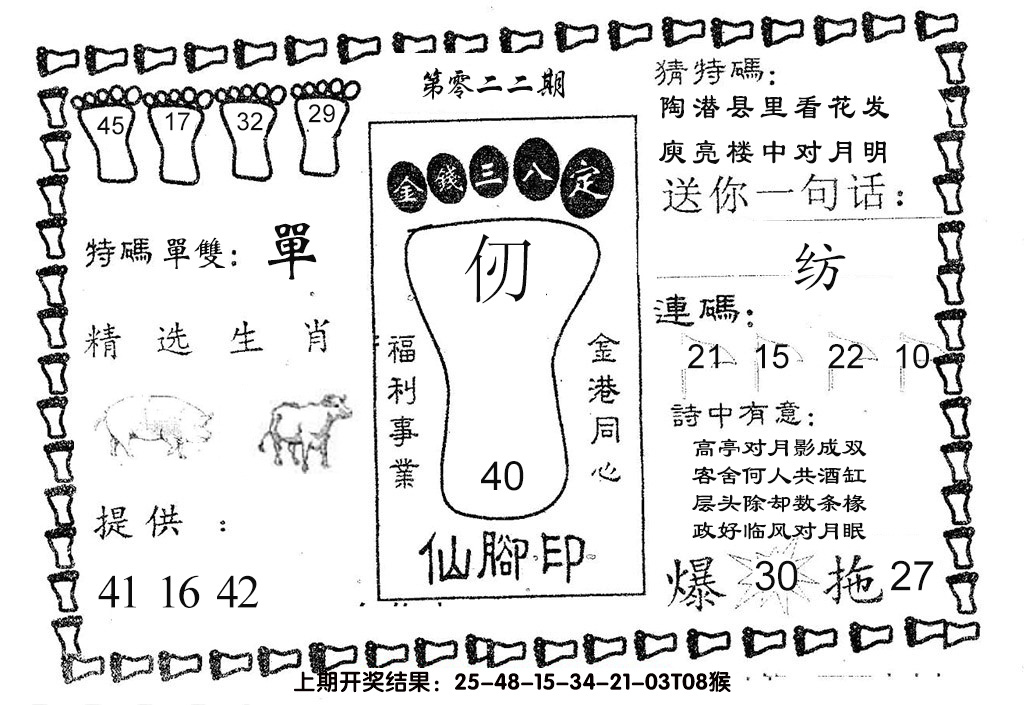 第零二二期
45 17 32 29
特碼單雙：單
精选生肖
提供：
41 16 42
金錢三八定
仞
福利事業
金港同心
40
仙腳印
猜特碼：
陶潜县里看花发
庾亮楼中对月明
送你一句话：
纺
連碼：
21 15 22 10
詩中有意：
高亭对月影成双
客舍何人共酒缸
层头除却数条椽
政好临风对月眠
爆 30 拖 27
上期开奖结果：25-48-15-34-21-03T08猴